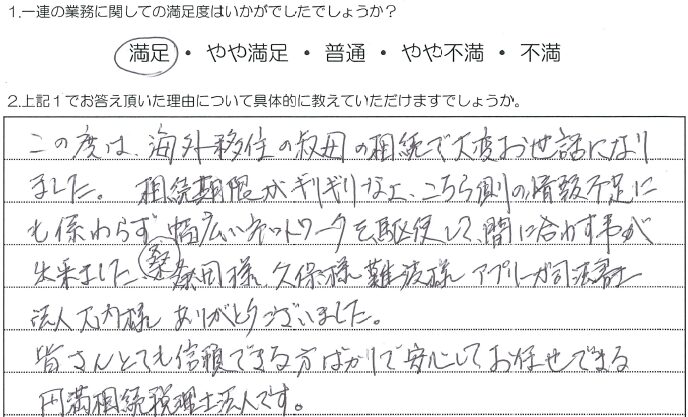 1.一連の業務に関しての満足度はいかがでしたでしょうか?
満足 ・ やや満足 ・ 普通 ・ やや不満 ・ 不満
2.上記1でお答え頂いた理由について具体的に教えていただけますでしょうか。
この度は、海外移住の叔母の相続で大変お世話になり
ました。 相続期限がギリギリな上、こちら側の情報不足に
も係わらず 幅広いネットワークを駆使して、間に合わす事が
出来ました 桑 桑田様 久保様 難波様 アプリーガ司法書士
法人 大内様 ありがとうございました。
皆さんとても信頼できる方ばかりで安心してお任せできる
円満相続税理士法人です。